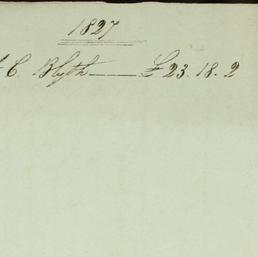 1827
C. Blyth —— £23.18.2